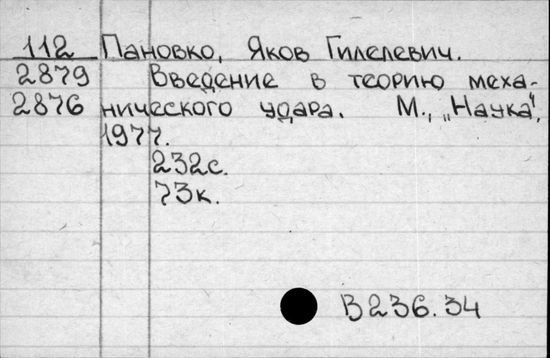 112 Пановко, Яков Гилелевич.
2879 Введение в теорию меха-
2876 нического удара. М., „Наука",
1977.
232с.
73к.
В236.34